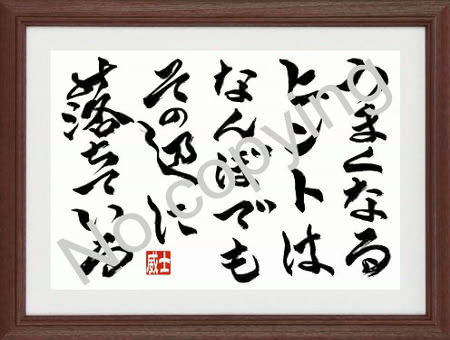 うまくなる
ヒントは
なんぼでも
その辺に
落ちている
威士
No copying